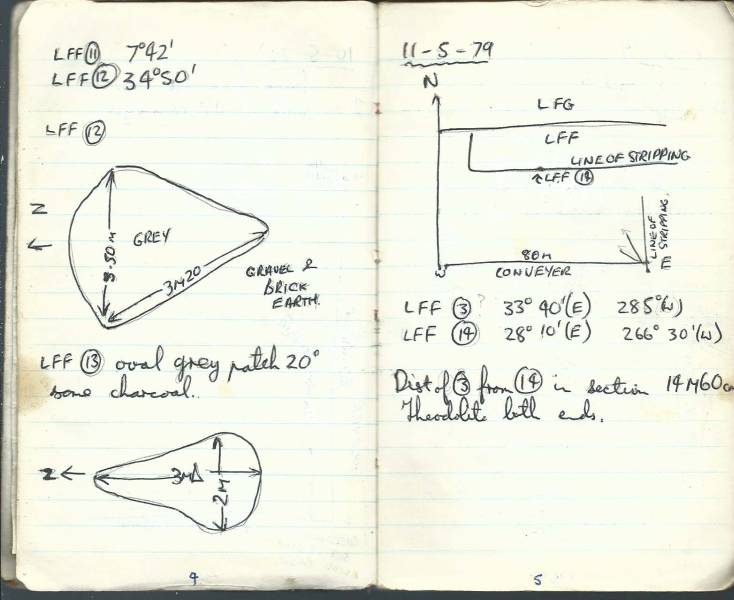 LFF ⑪ 7°42'
LFF ⑫ 34°50'
LFF ⑫
N
GREY
3.50 M
3M20
GRAVEL &
BRICK
EARTH.
LFF ⑬ oval grey patch 20°
some charcoal.
N
3M
2M
4
11-5-79
N
LFG
LFF
LINE OF STRIPPING
LFF ⑭
LINE OF
STRIPPING.
80M
W
E
CONVEYER
LFF ③ ? 33° 40'(E) 285°(W)
LFF ⑭ 28° 10'(E) 266° 30'(W)
Dist of ③ from ⑭ in section 14M60cm
Theodolite both ends.
5